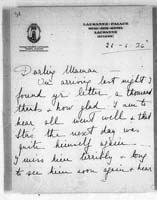 LAUSANNE-PALACE
LAUSANNE
21-6-36
Darling Maman
On arriving last night I
found yr letter a thousand
thanks, how glad I am to
hear all went well & that
the next day was
quite himself again
I miss him terribly & long
to see him soon again & hear